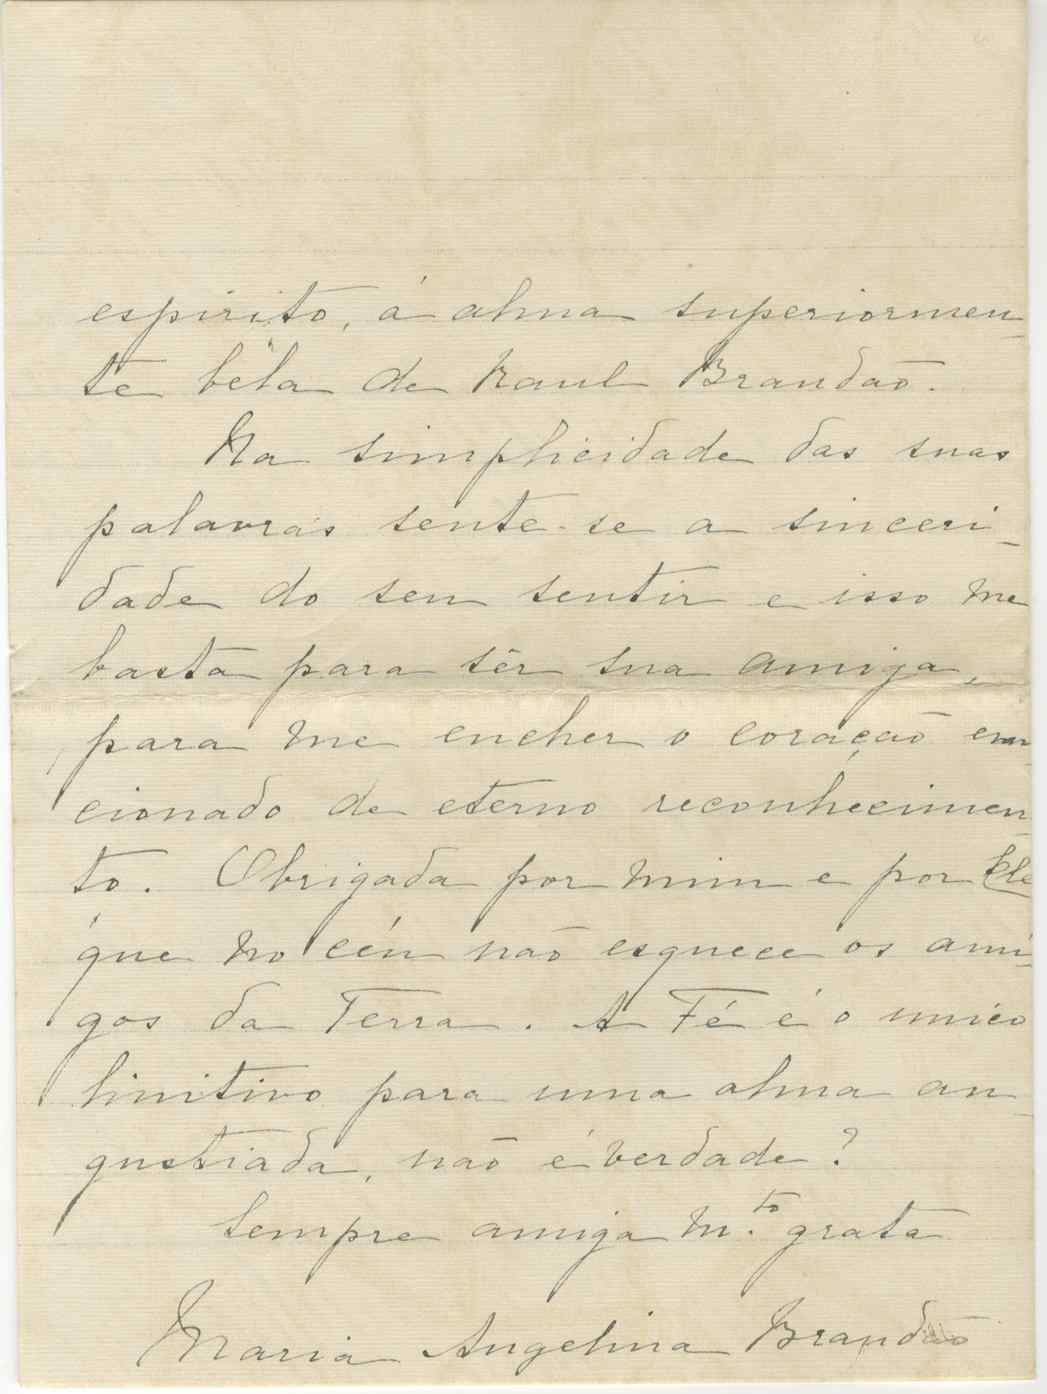 espirito, á alma superiormen-
te béla de Raul Brandão.
Na simplicidade das suas
palavras sente-se a sinceri-
dade do seu sentir e isso me
basta para sêr sua amiga,
para me encher o coração emo-
cionado de eterno reconhecimen-
to. Obrigada por mim e por Ele
que no céu não esquece os ami-
gos da Terra. A Fé é o unico
linitivo para uma alma an-
gustiada, não é verdade?
Sempre amiga m.to grata
Maria Angelina Brandão